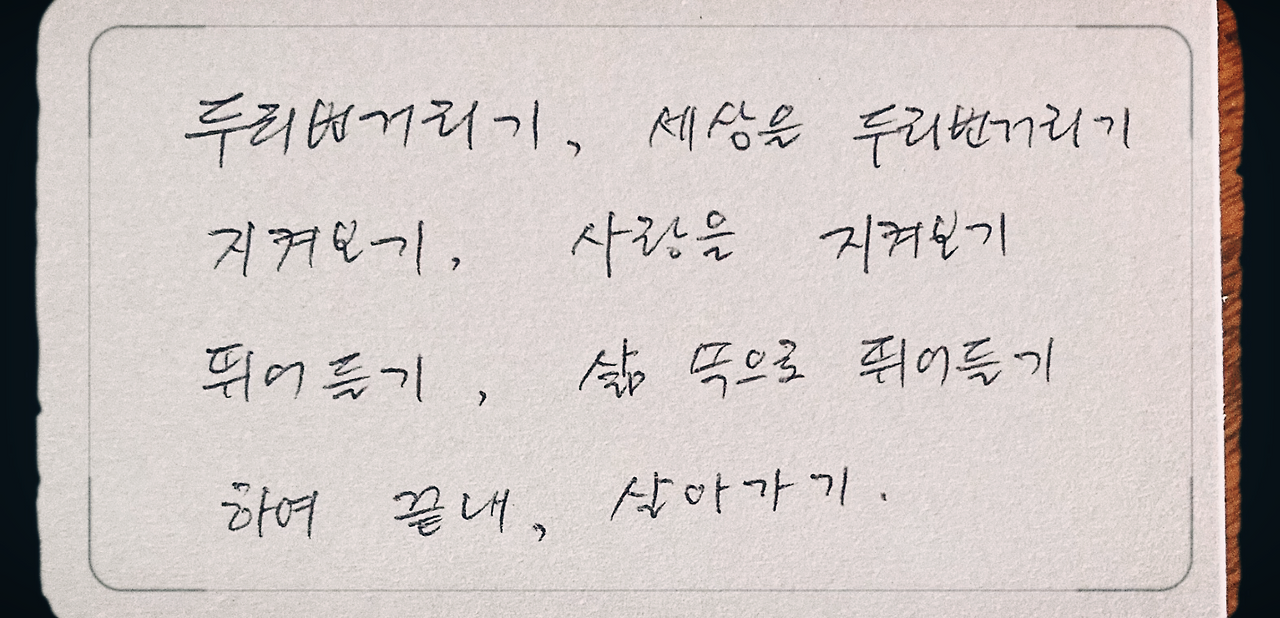 두리번거리기, 세상을 두리번거리기
지켜보기, 사랑을 지켜보기
뛰어들기, 삶 뚝으로 뛰어들기
하여 끝내, 살아가기.